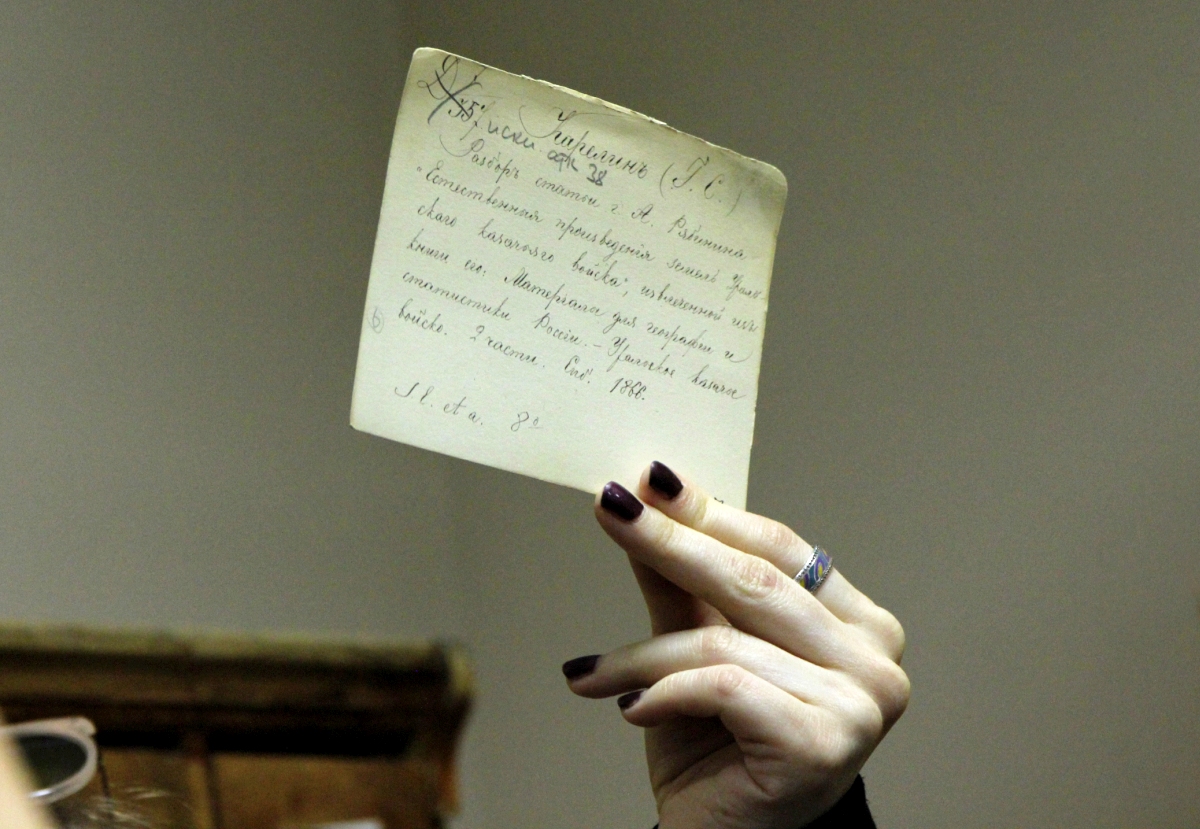 35
Карелинъ (Г. С.)
38
Разборъ статьи г. А. Рябинина
"Естественныя произведенія земель Ураль-
скаго казачьяго войска", извлеченной изъ
книги его: Матеріалы для географіи и
статистики Россіи. – Уральское казачье
войско. 2 части. Спб. 1866.
S. l. et a. 8°